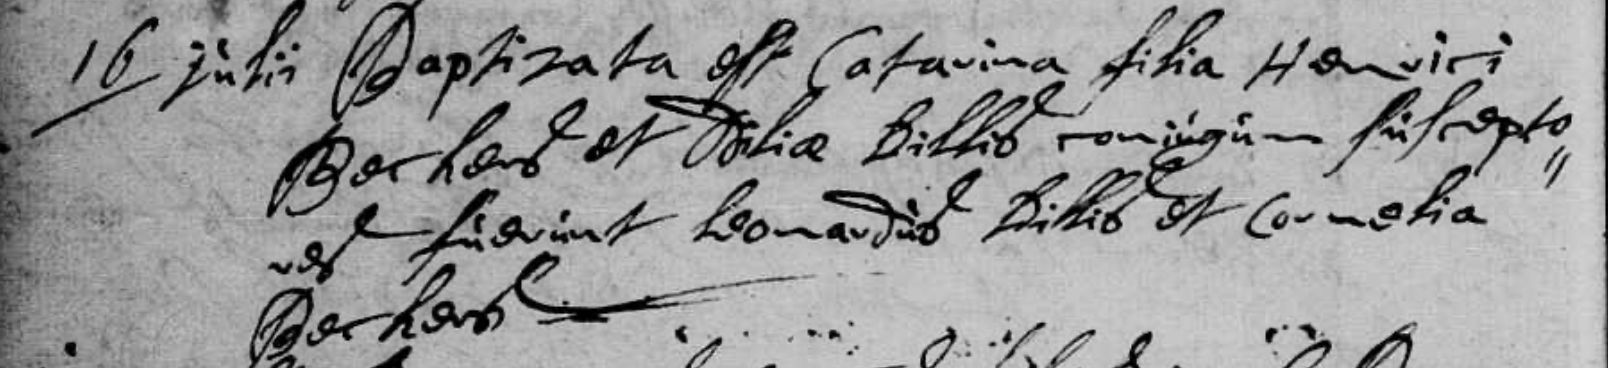 16 julii Baptizata est Catarina filia Henrici
Beckers et Odiliæ Billis coniugum suscepto„
res fuerunt Leonardus Billis et Cornelia
Beckers